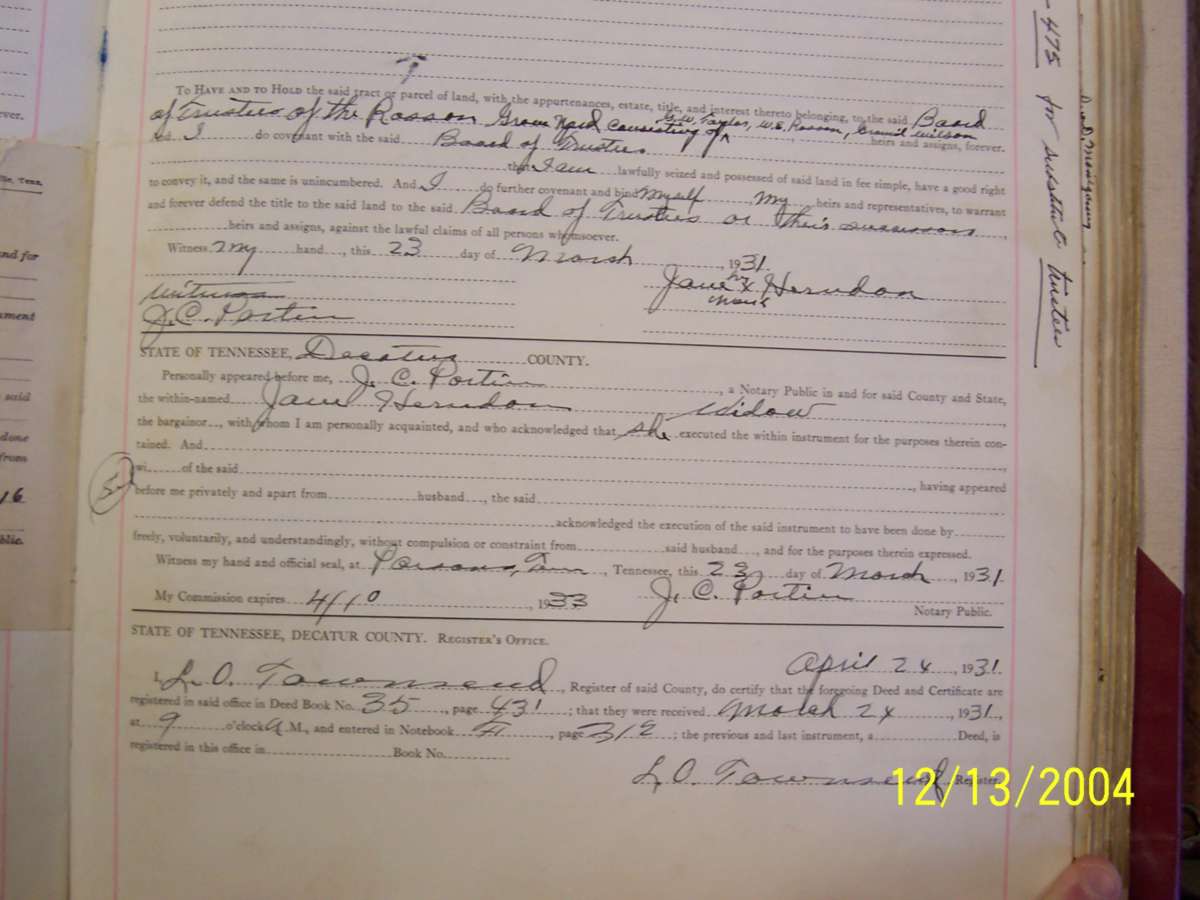 To Have and to Hold the said tract or parcel of land, with the appurtenances, estate, title, and interest thereto belonging, to the said Board
of Trustees of the Rosson Grove Yard consisting of G.W. Taylor, W.E. Rosson, Wilson
heirs and assigns, forever.
And I do covenant with the said Board of Trustees
that I am lawfully seized and possessed of said land in fee simple, have a good right
to convey it, and the same is unincumbered. And I do further covenant and bind myself my heirs and representatives, to warrant
and forever defend the title to the said land to the said Board of Trustees or their successors,
heirs and assigns, against the lawful claims of all persons whomsoever.
Witness my hand, this 23 day of March, 1931.
her
Jane x Herndon
mark
Witness
J.C. Portin
STATE OF TENNESSEE, Decatur COUNTY.
Personally appeared before me, J. C. Portin, a Notary Public in and for said County and State,
the within-named Jane Herndon Widow,
the bargainor, with whom I am personally acquainted, and who acknowledged that she executed the within instrument for the purposes therein con-
tained. And
wi of the said, having appeared
before me privately and apart from husband, the said
acknowledged the execution of the said instrument to have been done by
freely, voluntarily, and understandingly, without compulsion or constraint from said husband, and for the purposes therein expressed.
Witness my hand and official seal, at Parsons, Tenn, Tennessee, this 23 day of March, 1931.
My Commission expires 4/10, 1933 J. C. Portin
Notary Public.
STATE OF TENNESSEE, DECATUR COUNTY. Register's Office.
April 24, 1931.
I, L. O. Townsend, Register of said County, do certify that the foregoing Deed and Certificate are
registered in said office in Deed Book No. 35, page 431; that they were received March 24, 1931,
at 9 o'clock A.M., and entered in Notebook, page 312; the previous and last instrument, a Deed, is
registered in this office in Book No.
L. O. Townsend Register.
475 for substitute trustees
ver.
lle, Tenn.
nd for
ument
said
done
from
16
blic.
12/13/2004